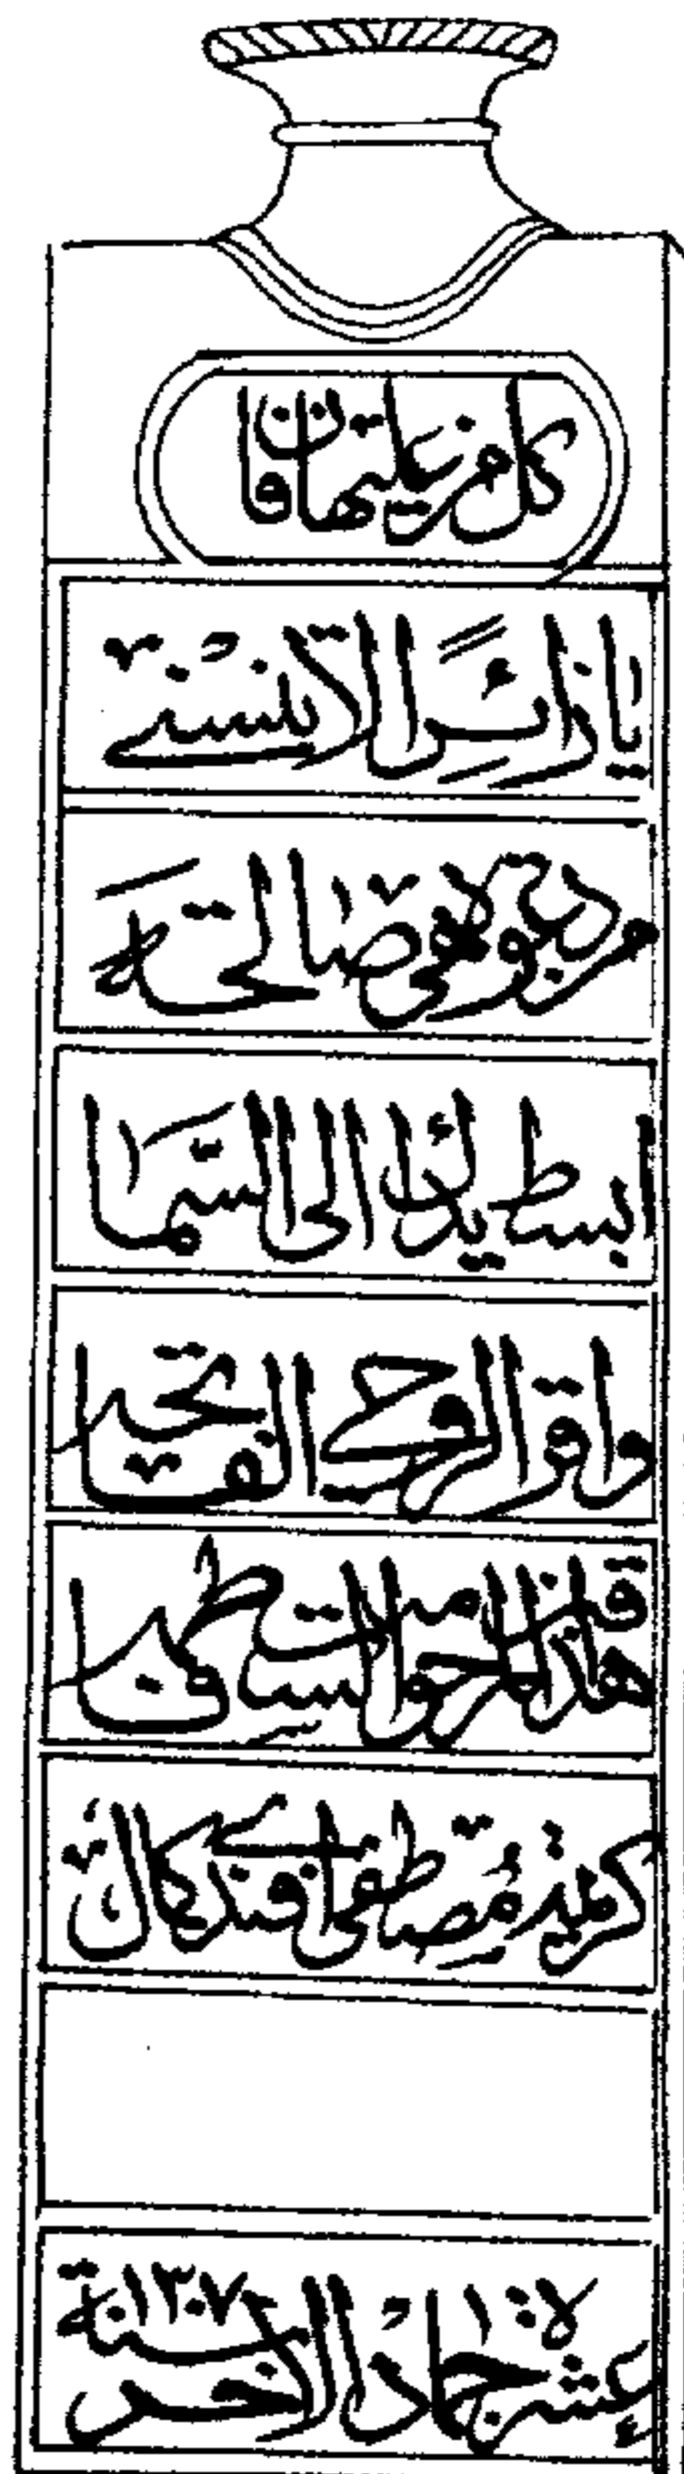 كل من عليها فان
يا زائرًا لا تنسني
من دعوة لي صالحة
ابسط يدك الى السما
واقرا لروحي الفاتحة
هذا قبر المرحوم الست فاطمة
كريمة مصطفى افندي كمال
عشرة جماد الاخر سنة ١٣٠٧